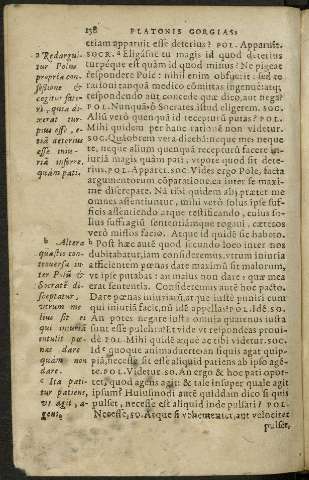 158 PLATONIS GORGIAS:
etiam apparuit esse deterius? POL. Apparuit.
SOCR. Eligásne tu magis id quod deterius
turpéque est quàm id quod minus? Ne pigeat
respondere Pole: nihil enim obfuerit: sed
rationi tanquã medico cõmittas ingenuè
respondendo aut concede quæ dico, aut nega?
POL. Nunquã ô Socrates istud eligerem. SOC.
Aliúsve quis id recepturus putas? POL.
Mihi quidem per hanc rationē non videtur.
SOC. Quidē vera dicebã neque mei neque
te, neque alium quenquã recepturū facere in-
iuriã magis quàm pati, vtpote quod sit dete-
rius. POL. Apparet. SOC. Vides ergo Pole, facta
argumentorum cõparatione inter se maxi-
me discrepare. Nã tibi quidem præter me
omnes assentiuntur, mihi verò solus ipse suf-
ficis assentiendo atque testificando, cuius so-
lius suffragiũ sententiámque rogãni, cæteros
verò missos facio. Atque id quidē sic habeto.
b Post hæc autē quod secundo loco inter nos
dubitabatur, iam consideremus. vtrum iniuria
afficientem pœnas dare maximũ sit malorum,
vt ipse putabas: an maius non dare: quæ mea
erat sententia. Consideremus autē hoc pacto.
Dare pœnas iniuriarũ, at que iustè puniri eum
qui iniuriã facit, nũ idē appellas? POL. Idē. SO.
An potes negare iusta omnia quatenus iusta
sunt esse pulchra? Et vide vt respondeas prouí-
dè. POL. Mihi quidē æquè ac tibi videtur. SOC.
Id quoque animaduerte: an siquis agat quip-
piã, necesse sit esse aliquid patiens ab ipso agē-
te. POL. Videtur. SO. An ergo & hoc pati opor-
tet, quod agens agit: & tale insuper quale agit
ipsum? Huiusmodi autē quiddam dico si quis
pulset, necesse est aliquid inde pulsari? POL.
Necesse. SO. Atque si vehementer, aut velociter
pulset,
a Redargui-
tur Polus
propria con-
fessione &
cogitur fate-
ri, quia di-
xerat tur-
pius esse, e-
tiã deterius
esse iniu-
riã inferre,
quàm pati.
b Altera
quæstio con-
trouersa in-
ter Polũ &
Socratē di-
sceptatur,
vtrum me-
lius sit ei
qui iniuriã
intulit pœ-
nas dare
quàm non
dare.
c Ita pati-
tur patiens,
vt agit, a-
gens.